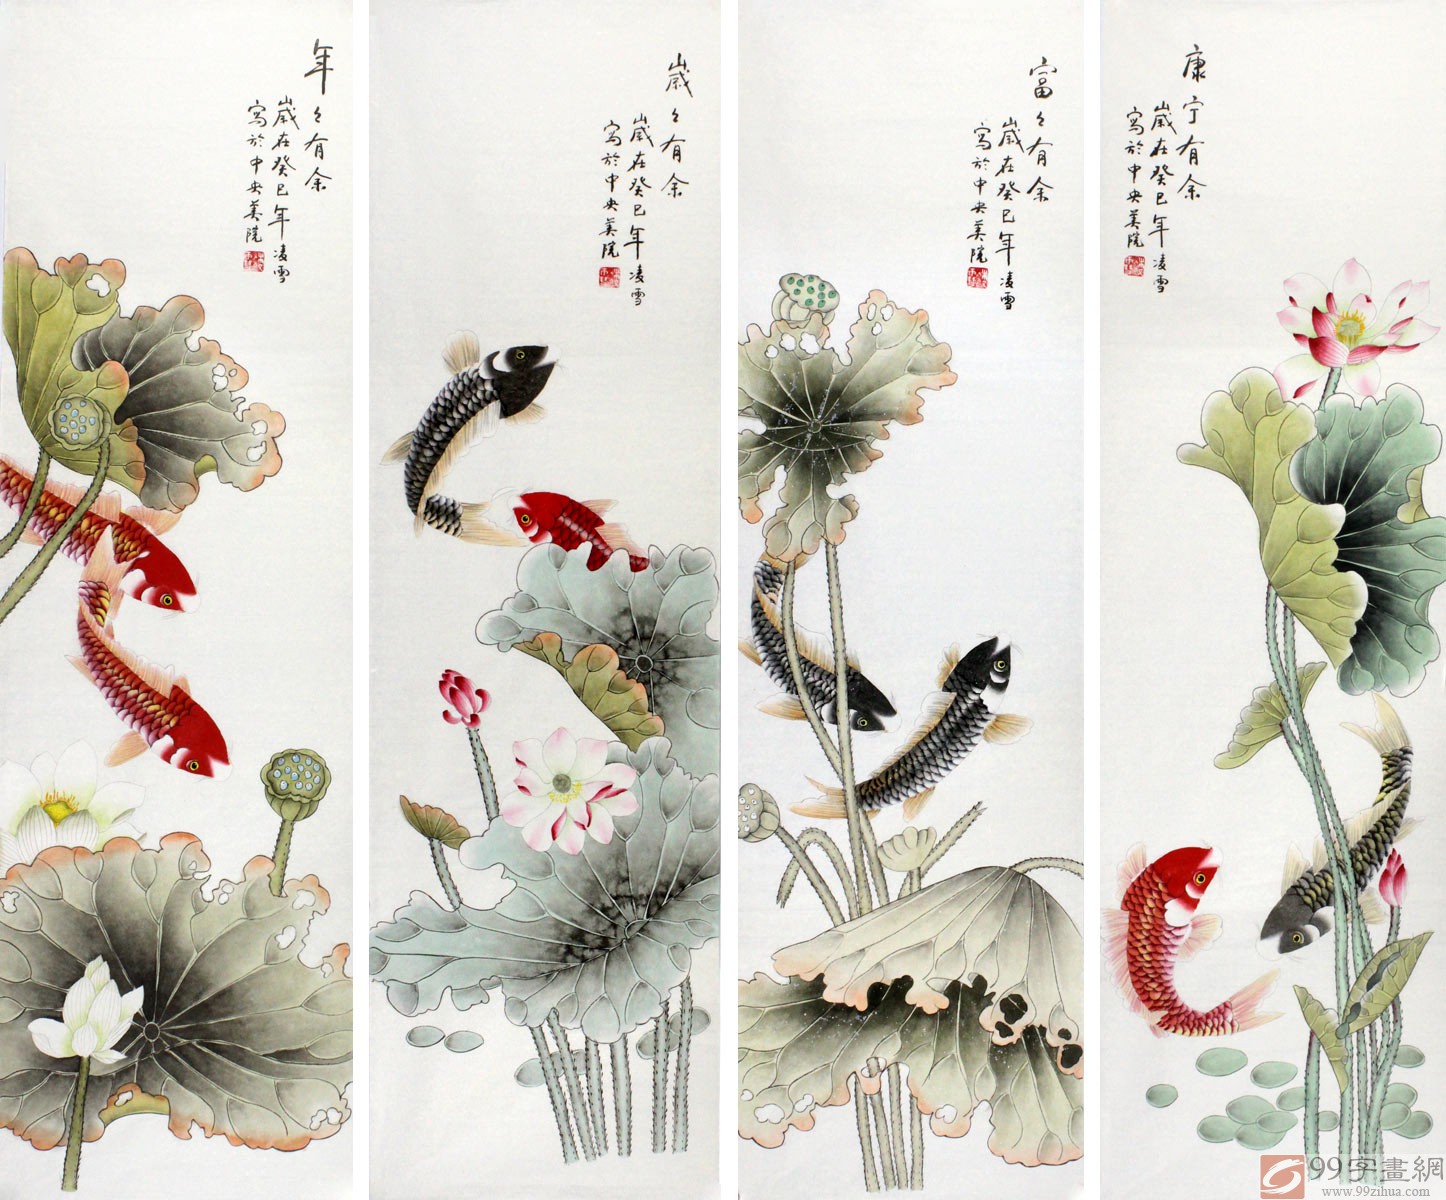 年々有余
歲在癸巳年凌雪
寫於中央美院
歲々有余
歲在癸巳年凌雪
寫於中央美院
富々有余
歲在癸巳年凌雪
寫於中央美院
康宁有余
歲在癸巳年凌雪
寫於中央美院
99字畫網
www.99zihua.com